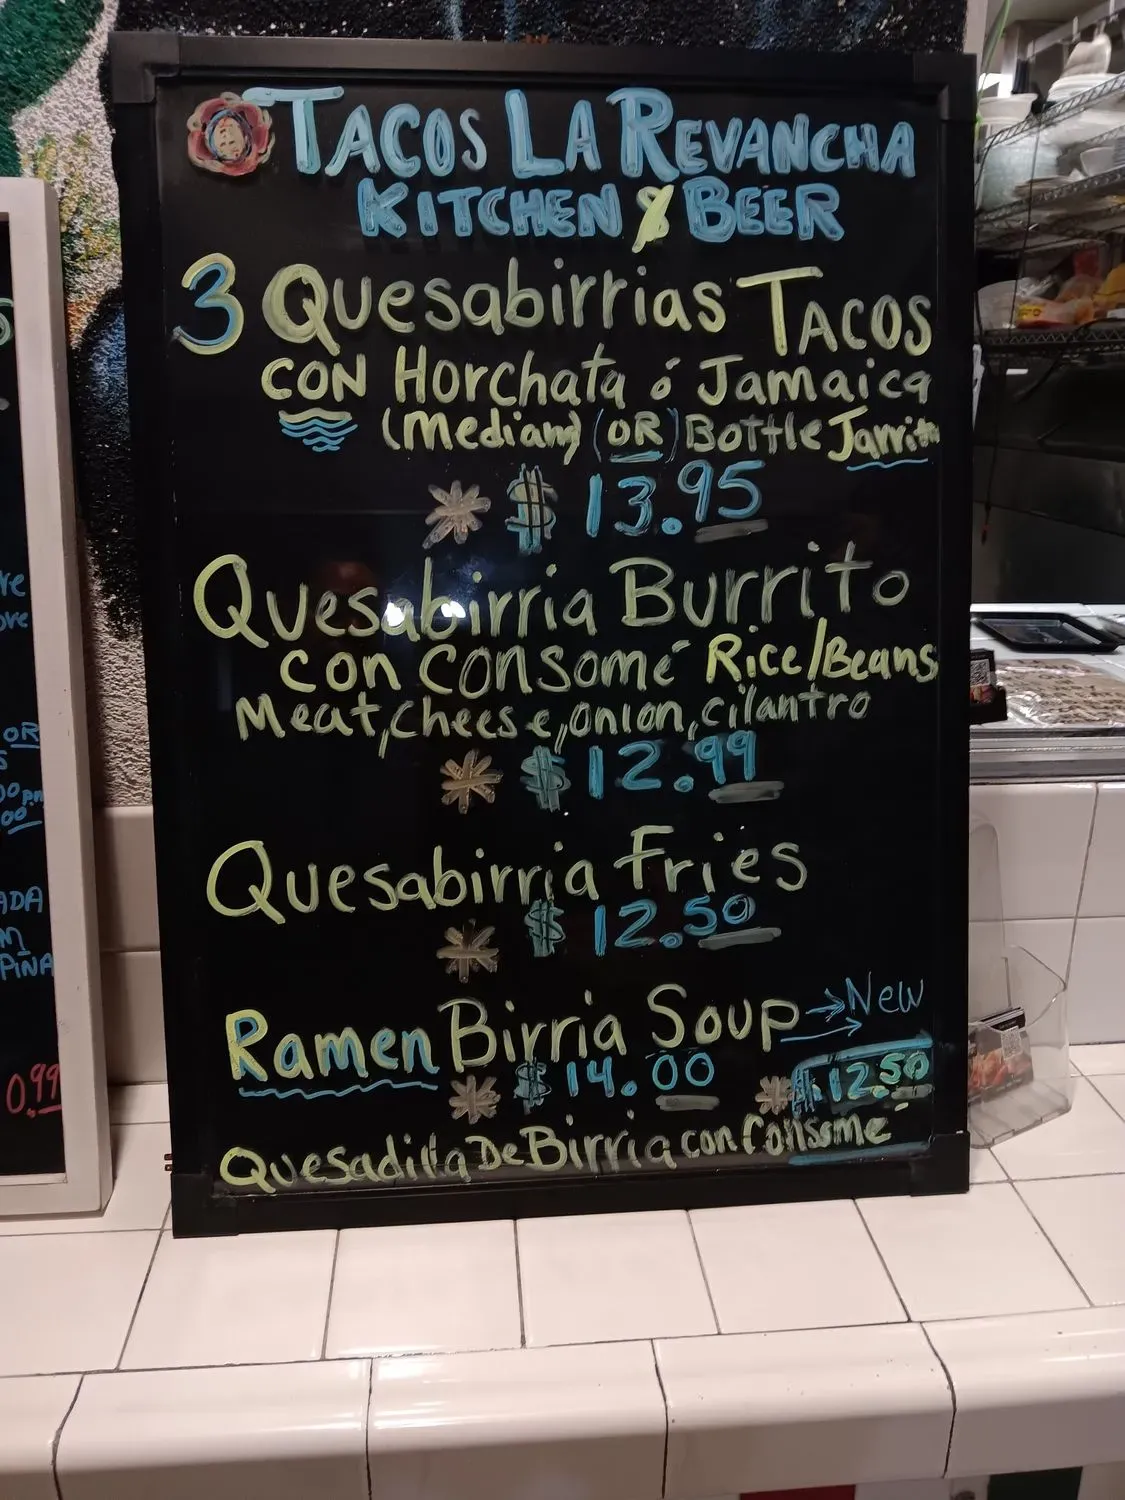 TACOS LA REVANCHA
KITCHEN & BEER
3 Quesabirrias TACOS
CON Horchata ó Jamaica
(Medium) (OR) Bottle Jarrito
* $ 13.95
Quesabirria Burrito
con consomé Rice/Beans
Meat, cheese, onion, cilantro
* $ 12.99
Quesabirria Fries
* $ 12.50
Ramen Birria Soup → New
* $ 14.00 * $12.50
Quesadilla De Birria con Consomé
OR
ADA
PIÑA
0.99